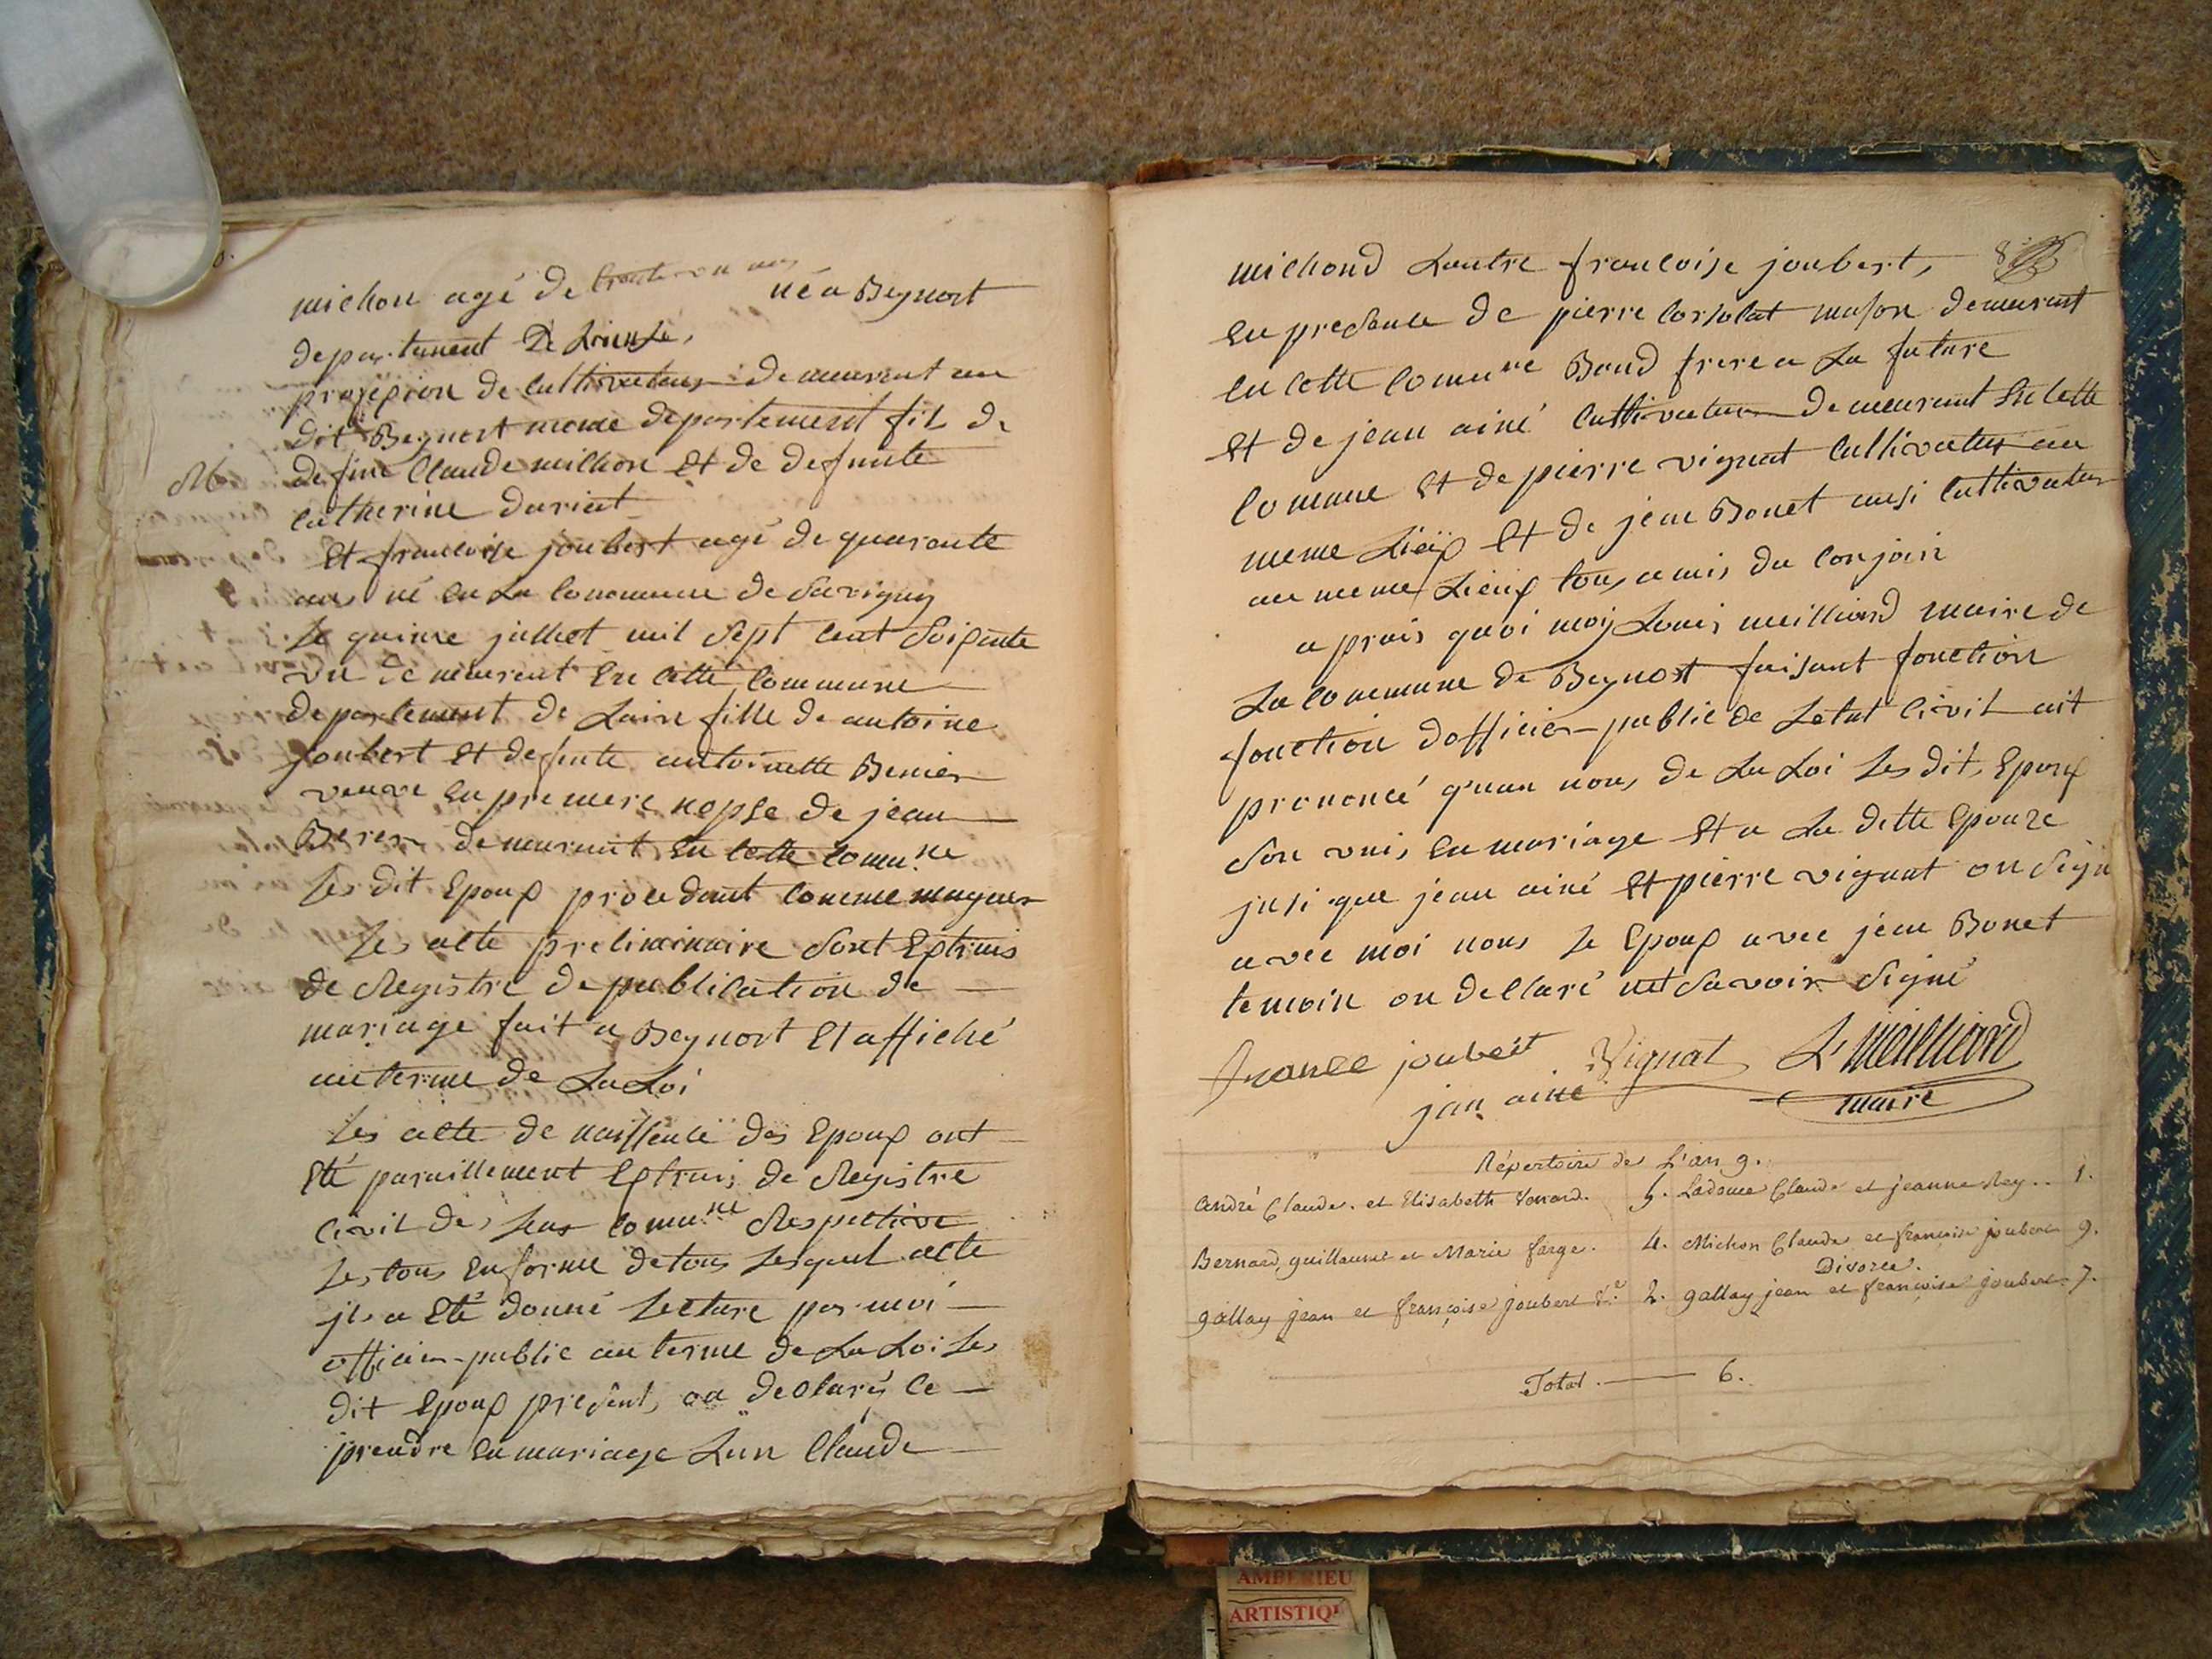 michon agé de trente un ans né a Beynost
departement De
profession de Cultivateur demeurant au
dit Beynost meme departement fil de
M
defun Claude michon Et de defunte
Catherine duriat
Et francoise joubert agé de quarante
ans né en La Commune de Savigny
Le quinze julliet mil Sept Cent Soixente
un demeurent En Cette Commune
departement de Lain fille de antoine
joubert Et defente antoinette Benier
veuve En premiere nopse de jean
demeurant En Cette Comu.ne
Les dit Epoux procedant Comme mageur
Les acte preliminaire Sont Extrais
de Registre de publication de
mariage fait a Beynost Et affiché
au terme de La Loi
Les acte de naissence des Epoux ont
Eté paraillement Extrais de Registre
Civil des Leur Comu.ne Respective
Les tous En forme de tous Lesquel acte
jl a Eté donné Lecture par moi
officier public au terme de La Loi Les
dit Epoux present, on declaré Ce
prendre En mariage Lun Claude
michond Lautre francoise joubert, 8
En presence de pierre Corsolat mason demeurant
En Cette Comune Baud frere a La future
Et de jean ainé Cultivateur demeurant En Cette
Comune Et de pierre vignat Cultivateur au
meme Lieux Et de jean Bonet ausi Cultivateur
au meme Lieux tous amis du Conjoin
a prais quoi moy Louis meilliard maire de
La Commune de Beynost faisant fonction
fonction dofficier public de Letat Civil ait
prononcé quau nons de La Loi Les dit, Epoux
Son unis En mariage Et a La ditte Epouze
jnsi que jean ainé Et pierre vignat on Sign
avec moi nons Le Epoux avec jean Bonet
temoin on dellaré net Savoir Signé
france joubert Vignat L. Meilliard
jan ainé maire
Répertoire de L'an 9.
André Claude. et Elisabeth Vonard. 5. Ladouce Claude et jeanne Rey.. 1.
Bernard, guillaume et Marie farge. 4. Michon Claude et francoise joubert 9.
Divorce.
gallay jean et françoise joubert 2. gallay jean et francoise joubert. 7.
Total. 6.
AMBERIEU
ARTISTIQ